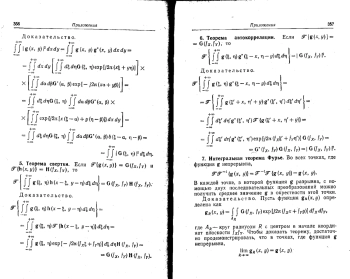 356
Приложения
Доказательство.
∬ |g(x, y)|² dx dy = ∬ g(x, y) g*(x, y) dx dy =
= ∬ dx dy [∬ dξ dη G(ξ, η) exp[j2π(xξ + yη)]] ×
× [∬ dα dβ G*(α, β) exp[−j2π(xα + yβ)]] =
= ∬ dξ dη G(ξ, η) ∬ dα dβ G*(α, β) ×
× [∬ exp{j2π[x(ξ − α) + y(η − β)]} dx dy] =
= ∬ dξ dη G(ξ, η) ∬ dα dβ G*(α, β) δ(ξ − α, η − β) =
= ∬ |G(ξ, η)|² dξ dη.
5. Теорема свертки. Если ℱ{g(x, y)} = G(fX, fY) и
ℱ{h(x, y)} = H(fX, fY), то
ℱ{∬ g(ξ, η) h(x − ξ, y − η) dξ dη} = G(fX, fY) H(fX, fY).
Доказательство.
ℱ{∬ g(ξ, η) h(x − ξ, y − η) dξ dη} =
= ∬ g(ξ, η) ℱ{h(x − ξ, y − η)} dξ dη =
= ∬ g(ξ, η) exp[−j2π(fXξ + fYη)] dξ dη H(fX, fY) =
= G(fX, fY) H(fX, fY).
Приложения
357
6. Теорема автокорреляции. Если ℱ{g(x, y)} =
= G(fX, fY), то
ℱ{∬ g(ξ, η) g*(ξ − x, η − y) dξ dη} = |G(fX, fY)|².
Доказательство.
ℱ{∬ g(ξ, η) g*(ξ − x, η − y) dξ dη} =
= ℱ{∬ g(ξ′ + x, η′ + y) g*(ξ′, η′) dξ′ dη′} =
= ∬ dξ′ dη′ g*(ξ′, η′) ℱ{g(ξ′ + x, η′ + y)} =
= ∬ dξ′ dη′ g*(ξ′, η′) exp[j2π(fXξ′ + fYη′)] G(fX, fY) =
= G*(fX, fY) G(fX, fY) = |G(fX, fY)|².
7. Интегральная теорема Фурье. Во всех точках, где
функция g непрерывна,
ℱℱ⁻¹{g(x, y)} = ℱ⁻¹ℱ{g(x, y)} = g(x, y).
В каждой точке, в которой функция g разрывна, с по-
мощью двух последовательных преобразований можно
получить среднее значение g в окрестности этой точки.
Доказательство. Пусть функция gR(x, y) опре-
делена как
gR(x, y) = ∬ G(fX, fY) exp[j2π(fXx + fYy)] dfX dfY,
где AR — круг радиусом R с центром в начале коорди-
нат плоскости fXfY. Чтобы доказать теорему, достаточ-
но продемонстрировать, что в точках, где функция g
непрерывна,
lim gR(x, y) = g(x, y)